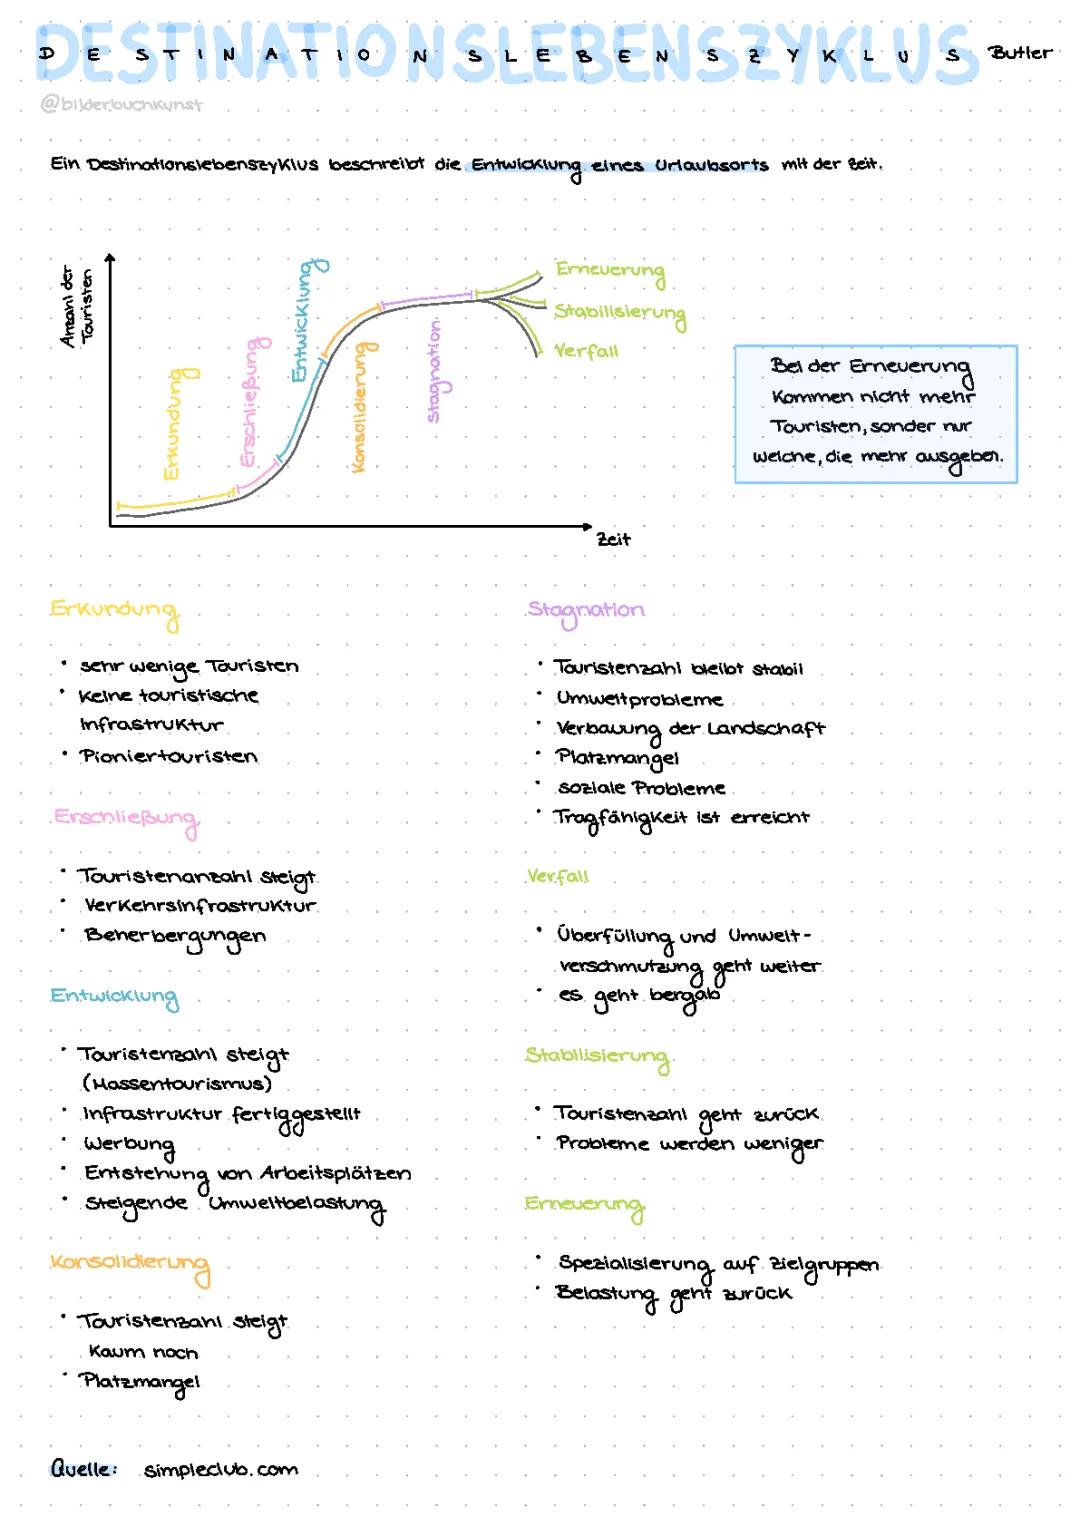 DESTINATIONSLEBENSZYKLUS Butler
@bilderbuchkunst
Ein Destinationslebenszyklus beschreibt die Entwicklung eines Urlaubsorts mit der Zeit.
Anzahl der
Touristen
Erkundung
Erschließung
Entwicklung
Konsolidierung
Stagnation
Erneuerung
Stabilisierung
Verfall
Zeit
Bei der Erneuerung
kommen nicht mehr
Touristen, sonder nur
welche, die mehr ausgeben.
Erkundung
• sehr wenige Touristen
• keine touristische
Infrastruktur
• Pioniertouristen
Erschließung
• Touristenanzahl steigt
• Verkehrsinfrastruktur
• Beherbergungen
Entwicklung
• Touristenzahl steigt
(Massentourismus)
• Infrastruktur fertiggestellt
• Werbung
• Entstehung von Arbeitsplätzen
• Steigende Umweltbelastung
Konsolidierung
• Touristenzahl steigt
kaum noch
• Platzmangel
Stagnation
• Touristenzahl bleibt stabil
• Umweltprobleme
• Verbauung der Landschaft
• Platzmangel
• soziale Probleme
• Tragfähigkeit ist erreicht
Verfall
• Überfüllung und Umwelt-
verschmutzung geht weiter
• es geht bergab
Stabilisierung
• Touristenzahl geht zurück
• Probleme werden weniger
Erneuerung
• Spezialisierung auf Zielgruppen
• Belastung geht zurück
Quelle: simpleclub.com